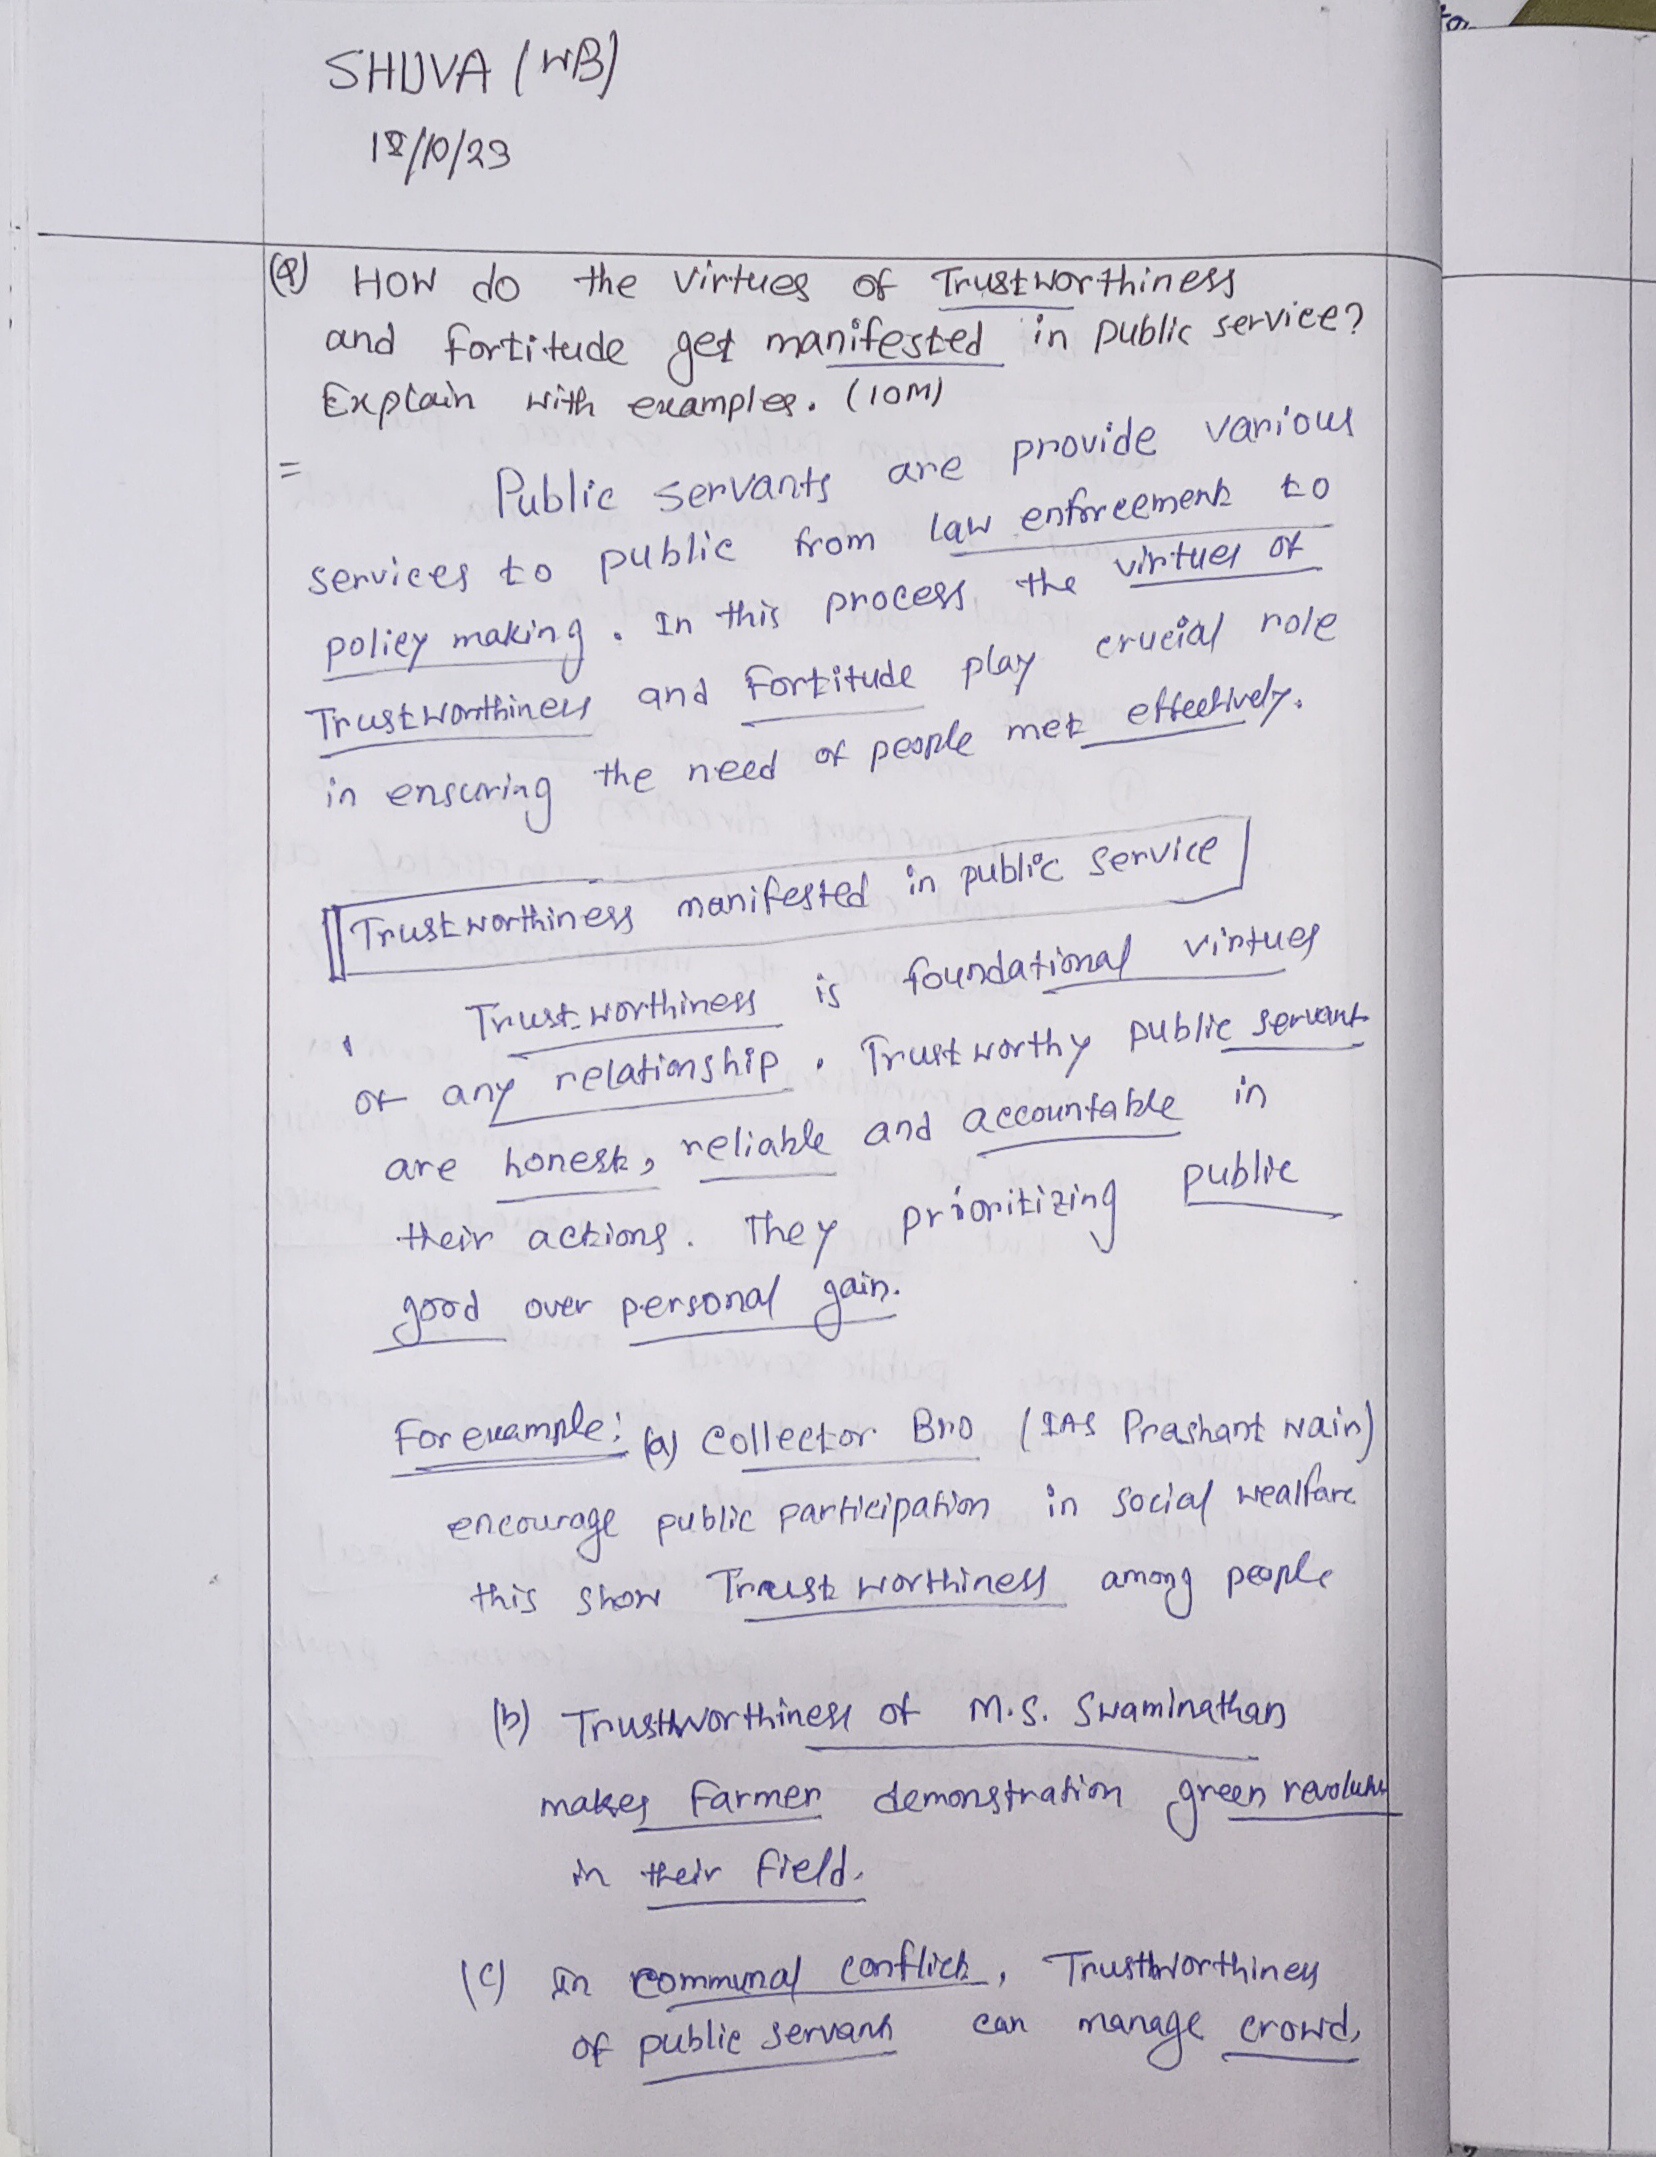 SHUVA (WB)
18/10/23
(Q) HOW do the virtues of Trustworthiness
and fortitude get manifested in public service?
Explain with examples. (10M)
= Public servants are provide various
services to public from law enforcement to
policy making. In this process the virtues of
Trustworthiness and Fortitude play crucial role
in ensuring the need of people met effectively.
Trustworthiness manifested in public service
Trustworthiness is foundational virtues
of any relationship. Trustworthy public servant
are honest, reliable and accountable in
their actions. They prioritizing public
good over personal gain.
For example: (a) Collector Bro (IAS Prashant Nain)
encourage public participation in social wealfare
this show Trustworthiness among people
(b) Trustworthiness of M.S. Swaminathan
makes farmer demonstration green revolution
in their field.
(c) In communal conflict, Trustworthiness
of public servant can manage crowd,